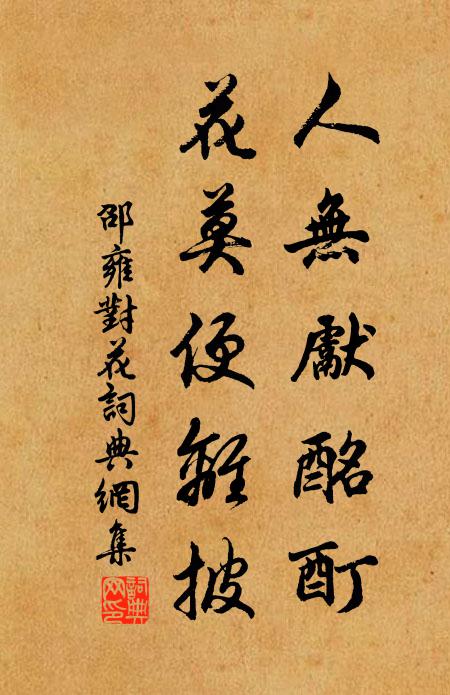 人無獻酩酊
花莫便離披
邵雍對花詞典網集
詞典網印